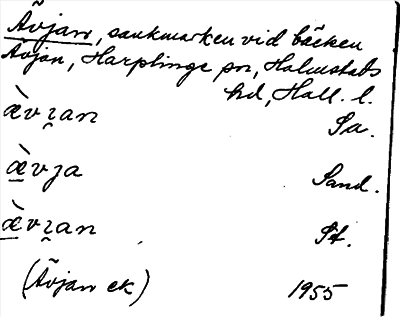 Ãvjan, sankmarken vid bäcken
Ãvjan, Harplinge sn, Halmstads
hd, Hall. l.
æ̀vɀan Sa.
æ̀vja Sand.
æ̀vɀan St.
(Ãvjan ek) 1955